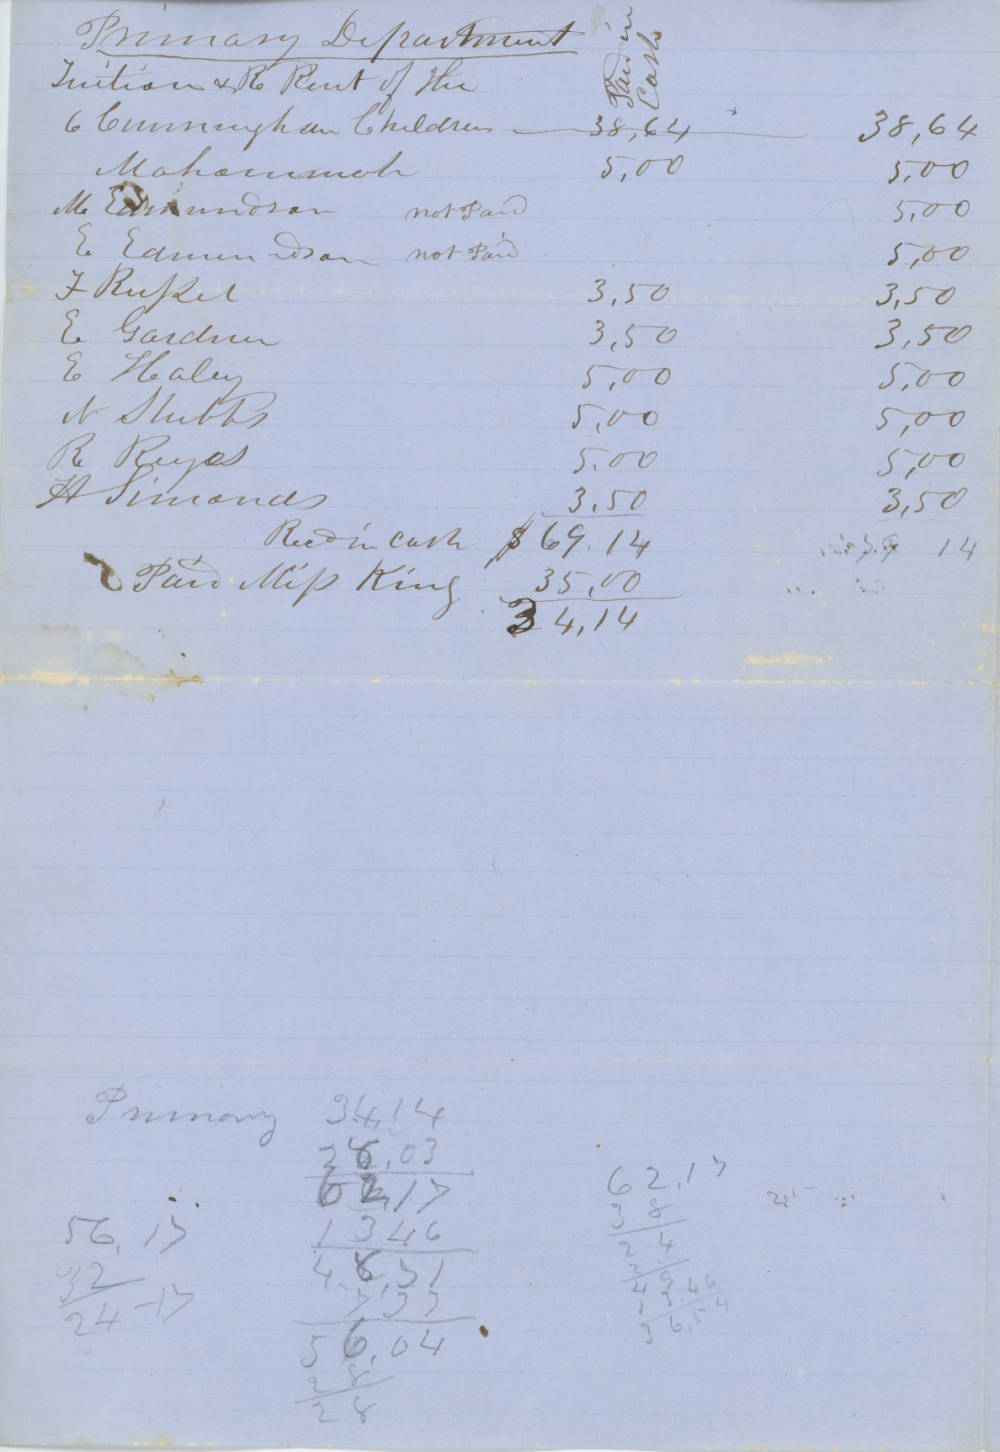 Primary Department
Paid in
Cash
Tuition & R Rent of the
6 Cunningham Children 38,64 38,64
Mahammah 5,00 5,00
M Edmundson not Paid 5,00
E Edmundson not Paid 5,00
F Russel 3,50 3,50
E Gardner 3,50 3,50
E Haley 5,00 5,00
N Stubbs 5,00 5,00
R Reyes 5.00 5,00
H Simonds 3.50 3,50
Recd in cash $69.14 14
Paid Miss King 35,00
34,14
Primary 34,14
28,03
62,17
1346
56,17
32
24-17
56,04
28
28
62,17
38
24